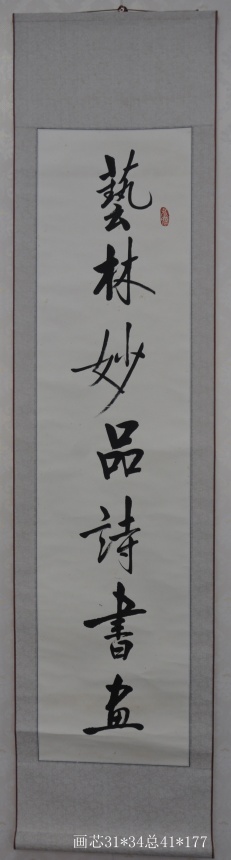 藝林妙品詩書画
画芯31*34总41*177